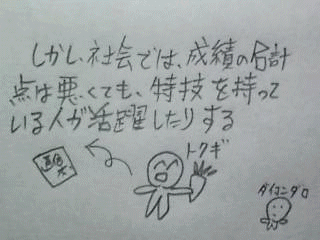 しかし、社会では、成績の合計
点は悪くても、特技を持って
いる人が活躍したりする
トクギ
ダイコンダロ